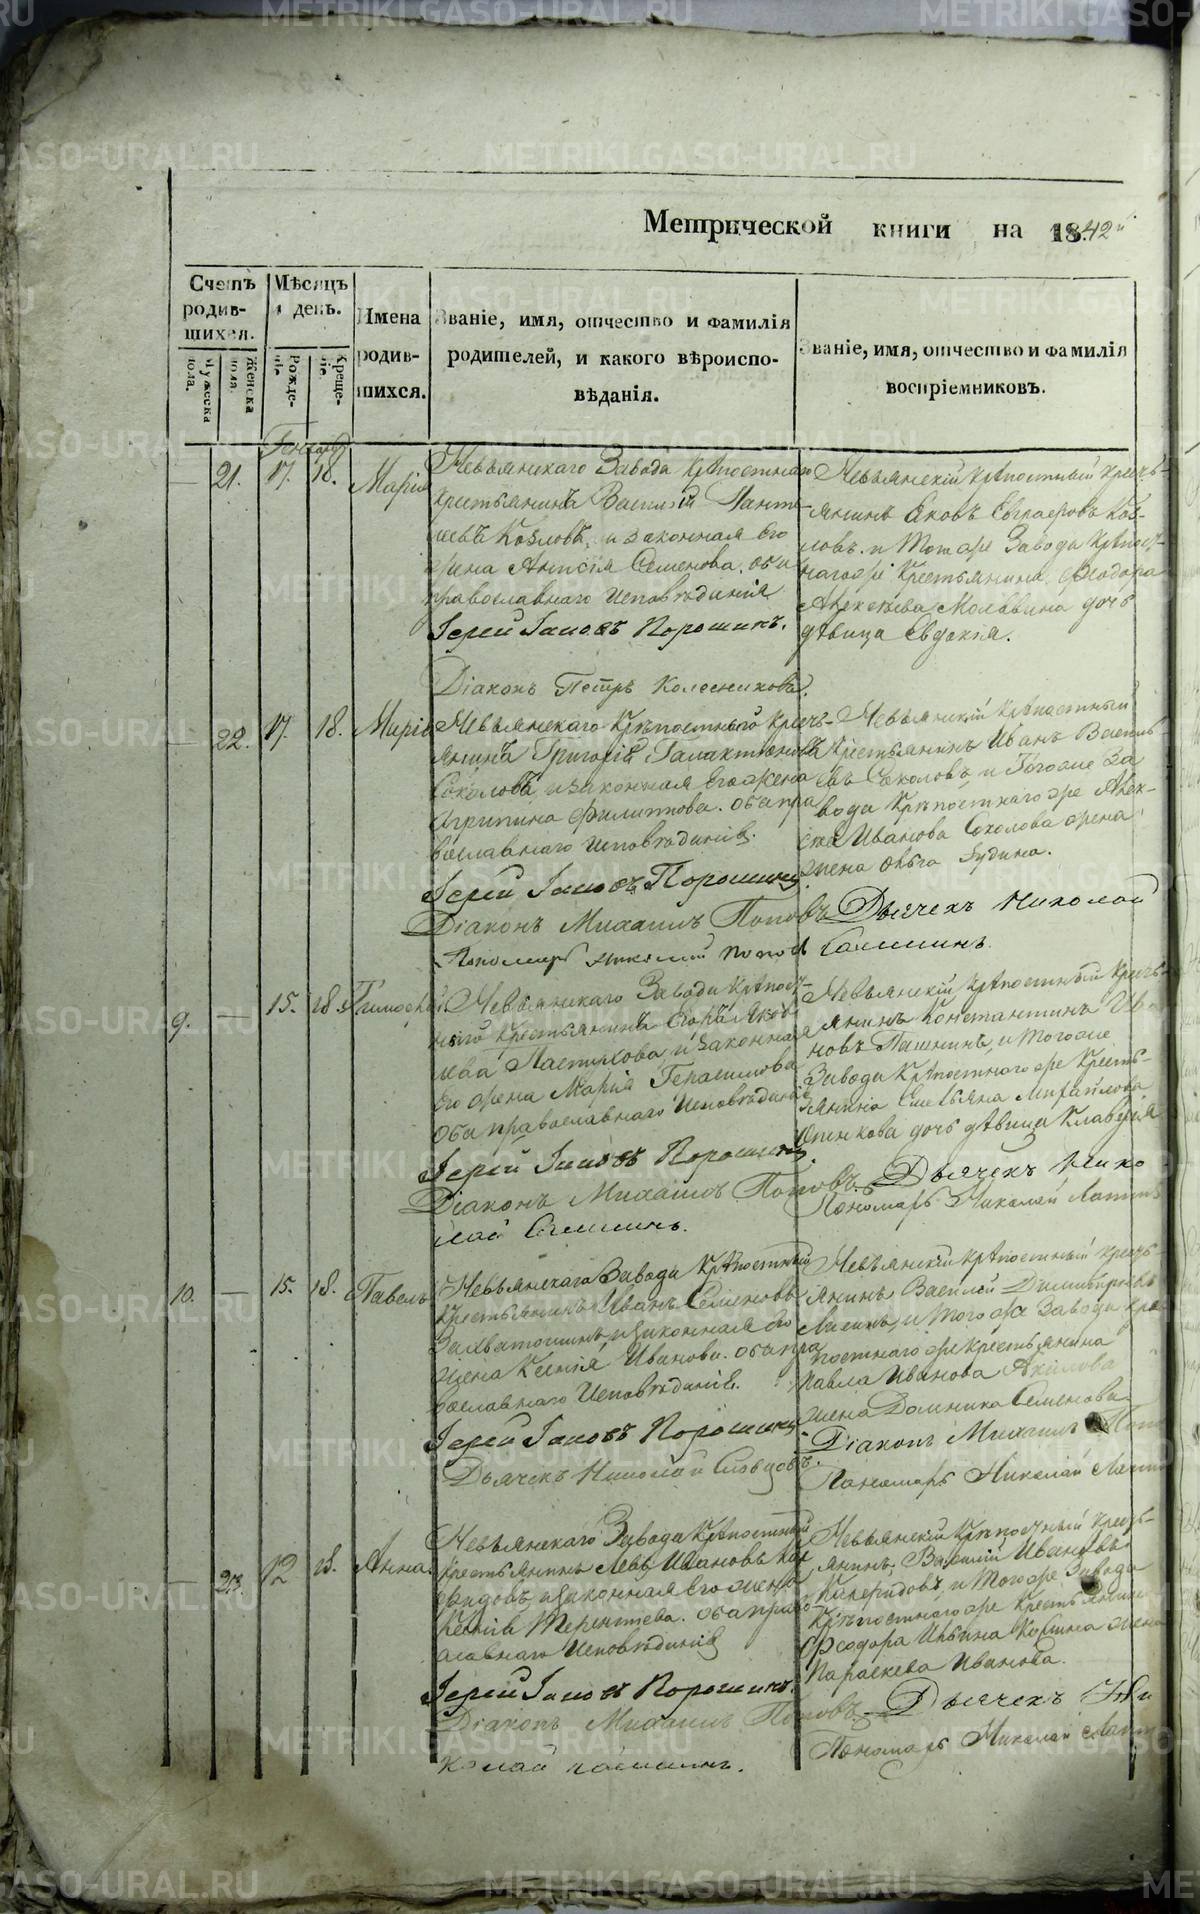 Метрической книги на 1842й
Счетъ родив-шихся.
Мѣсяцъ и день.
Имена родив-шихся.
Званіе, имя, отчество и фамилія
родителей, и какого вѣроиспо-
вѣданія.
Званіе, имя, отчество и фамилія
воспріемниковъ.
Мужеска пола.
Женска пола.
Рожде-ніе.
Креще-ніе.
Генварь
— 21. 17. 18. Марія
Невьянскаго Завода крѣпостнаго
крестьянинъ Василій Панте-
леевъ Козловъ, и законная его
жена Анисія Семенова. оба
православнаго исповѣданія
Іерей Іаковъ Порошинъ.
Діаконъ Петръ Колесниковъ.
Невьянскій крѣпостный кресть-
янинъ Яковъ Козловъ. и того же Завода крѣпост-
наго же крестьянина Феодора
Алексѣева Молвина дочь
дѣвица Евдокія.
— 22. 17. 18. Марія
Невьянскаго крѣпостнаго кресть-
янинъ Григорій Галактіоновъ
Соколовъ, и законная его жена
Агрипина Филиппова. оба пра
вославнаго исповѣданія.
Іерей Іаковъ Порошинъ
Діаконъ Михаилъ Поповъ
Невьянскій крѣпостный
крестьянинъ Иванъ Василь-
евъ Соколовъ, и тогоже За
вода крѣпостнаго же Алек-
сѣя Иванова Соколова жена
Дьячекъ Николай
9. — 15. 18. Тимоѳей
Невьянскаго Завода крѣпост-
наго крестьянинъ Егоръ Яков
лева Пастухова, и законная
его жена Марія Герасимова
оба православнаго исповѣданія
Іерей Іаковъ Порошинъ
Діаконъ Михаилъ Поповъ. Дьячекъ Нико
лай
Невьянскій крѣпостный кресть-
янинъ Константинъ Ива
новъ Пашнинъ, и тогоже
Завода крѣпостнаго же кресть-
янина Михайлова
дочь дѣвица Клавдія
Пономарь Николай
10. — 15. 18. Павелъ
Невьянскаго Завода крѣпостный
крестьянинъ Иванъ Семеновъ
и законная его
жена Ксенія Иванова. оба пра
вославнаго исповѣданія.
Іерей Іаковъ Порошинъ
Дьячекъ Николай Словцовъ.
Невьянскій крѣпостный кресть-
янинъ Василій Димитріевъ
и того же Завода крѣ
постнаго же крестьянина
Павла Иванова Акилова
жена Домника Семенова
Діаконъ Михаилъ
Пономарь Николай
— 23. 12. 18. Анна
Невьянскаго Завода крѣпостный
крестьянинъ Левъ Ивановъ
и законная его жена
Ксенія Терентьева. оба право-
славнаго исповѣданія
Іерей Іаковъ Порошинъ.
Діаконъ Михаилъ Поповъ. Дьячекъ Ни
колай
Невьянскій крѣпостный кресть-
янинъ Василій Ивановъ
и того же Завода
крѣпостнаго же крестьянина
Феодора Ильина жена
Параскева Иванова.
Пономарь Николай
METRIKI.GASO-URAL.RU